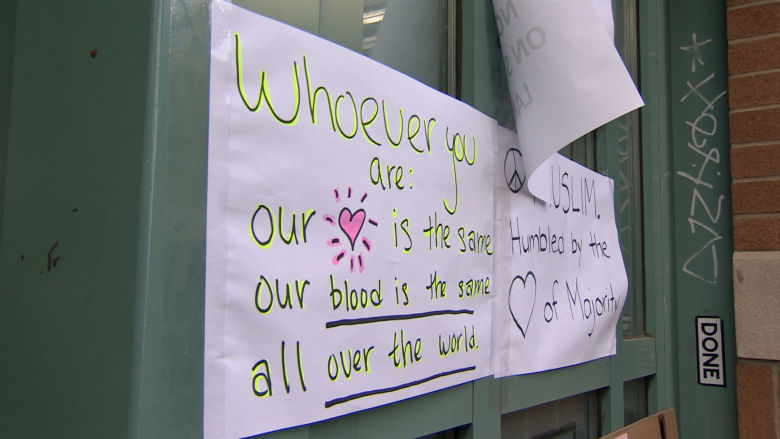 Whoever you
are:
our is the same
our blood is the same
all over the world.
Humbled by the
of Majority
DONE